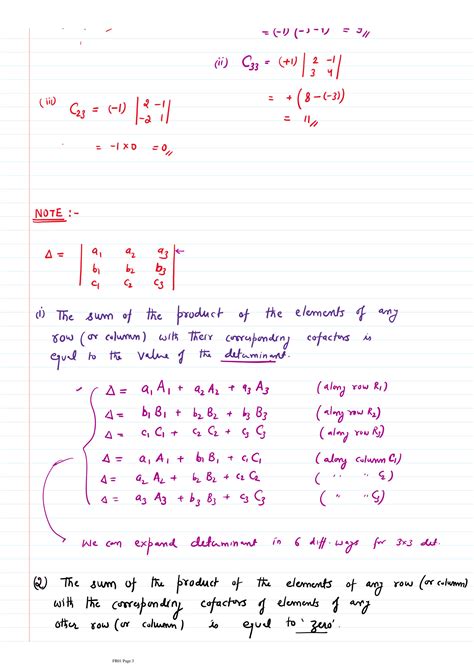 = (-1) (-3-1) = 5//
(ii) C33 = (+1) | 2 -1 |
| 3 4 |
= + (8-(-3))
= 11//
(iii) C23 = (-1) | 2 -1 |
| -2 1 |
= -1 x 0 = 0//
NOTE :-
Δ = | a1 a2 a3 | ←
| b1 b2 b3 |
| c1 c2 c3 |
(i) The sum of the product of the elements of any
row (or column) with their corresponding cofactors is
equal to the value of the determinant.
Δ = a1 A1 + a2 A2 + a3 A3 (along row R1)
Δ = b1 B1 + b2 B2 + b3 B3 (along row R2)
Δ = c1 C1 + c2 C2 + c3 C3 (along row R3)
Δ = a1 A1 + b1 B1 + c1 C1 (along column C1)
Δ = a2 A2 + b2 B2 + c2 C2 ( " " C2)
Δ = a3 A3 + b3 B3 + c3 C3 ( " " C3)
We can expand determinant in 6 diff. ways for 3x3 det.
(2) The sum of the product of the elements of any row (or column)
with the corresponding cofactors of elements of any
other row (or column) is equal to 'zero'.
FB01 Page 3